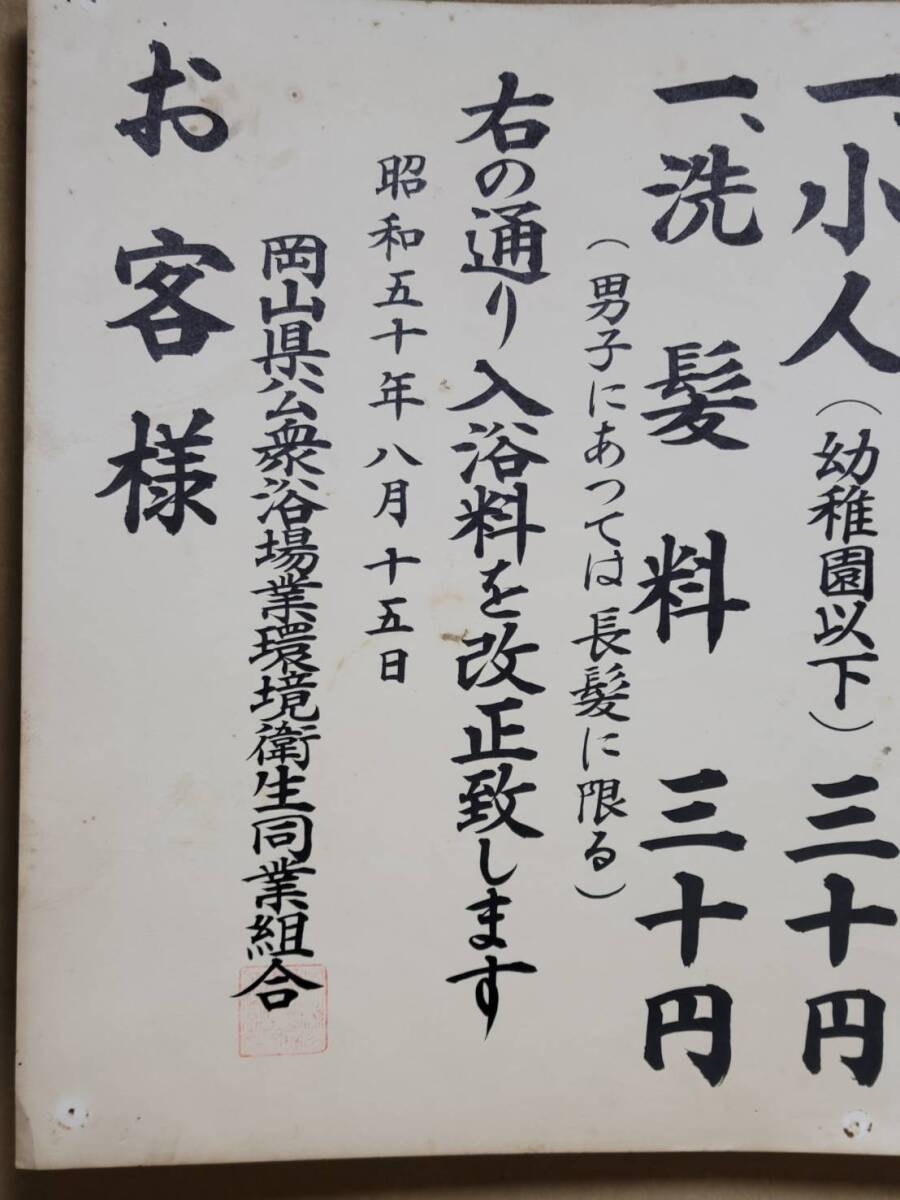 一、小人(幼稚園以下)三十円
一、洗髪料 三十円
(男子にあつては長髪に限る)
右の通り入浴料を改正致します
昭和五十年八月十五日
岡山県公衆浴場業環境衛生同業組合
お客様